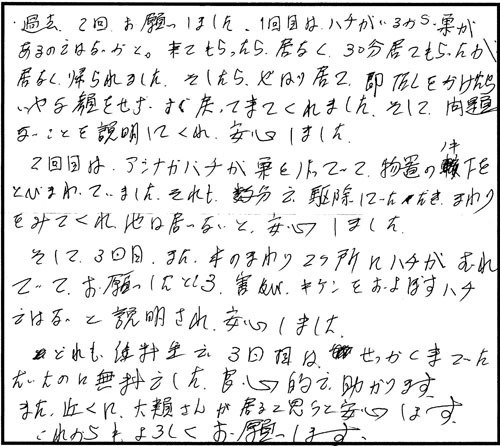 過去、2回、お願いしました。1回目は、ハチがいるから、巣が
あるのではないかと。来てもらったら、居なく、30分居てもらったが、
居なく、帰られました。そしたら、やはり居て、即TELをかけたら
いやな顔をせず、すぐ戻ってきてくれました。そして、問題
ないことを説明してくれ、安心しました。
2回目は、アシナガバチが巣を作っていて、物置のノキ下を
とびまわっていました。それも、数分で駆除していただき、まわり
をみてくれ、他は居ないと、安心しました。
そして、3回目、また、木のまわり2ヶ所にハチがむれ
ていて、お願いしたところ、害及び、キケンをおよぼすハチ
ではないと説明され、安心しました。
どれも、低料金で、3回目は、せっかくきていた
だいたのに無料でした。良心的で、助かります。
また、近くに、大頼さんが居ると思うと安心します。
これからもよろしくお願いします。